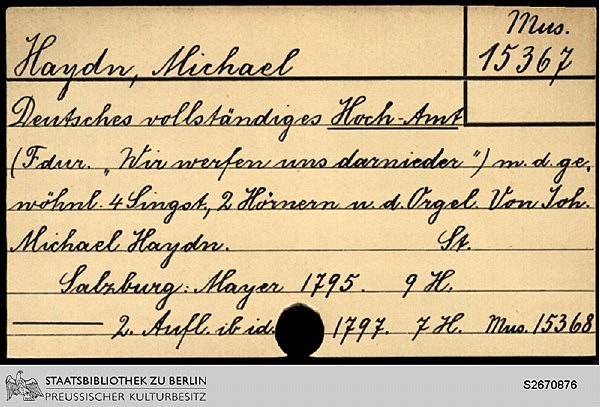 Mus.
Haydn, Michael 15367
Deutsches vollständiges Hoch-Amt
(Fdur. „Wir werfen uns darnieder") m. d. ge,
wöhnl. 4 Singst., 2 Hörnern u. d. Orgel. Von Joh.
Michael Haydn. St.
Salzburg: Mayer 1795. 9 H.
——— 2. Aufl. ibid. 1797. 7 H. Mus. 15368
STAATSBIBLIOTHEK ZU BERLIN
PREUSSISCHER KULTURBESITZ
S2670876